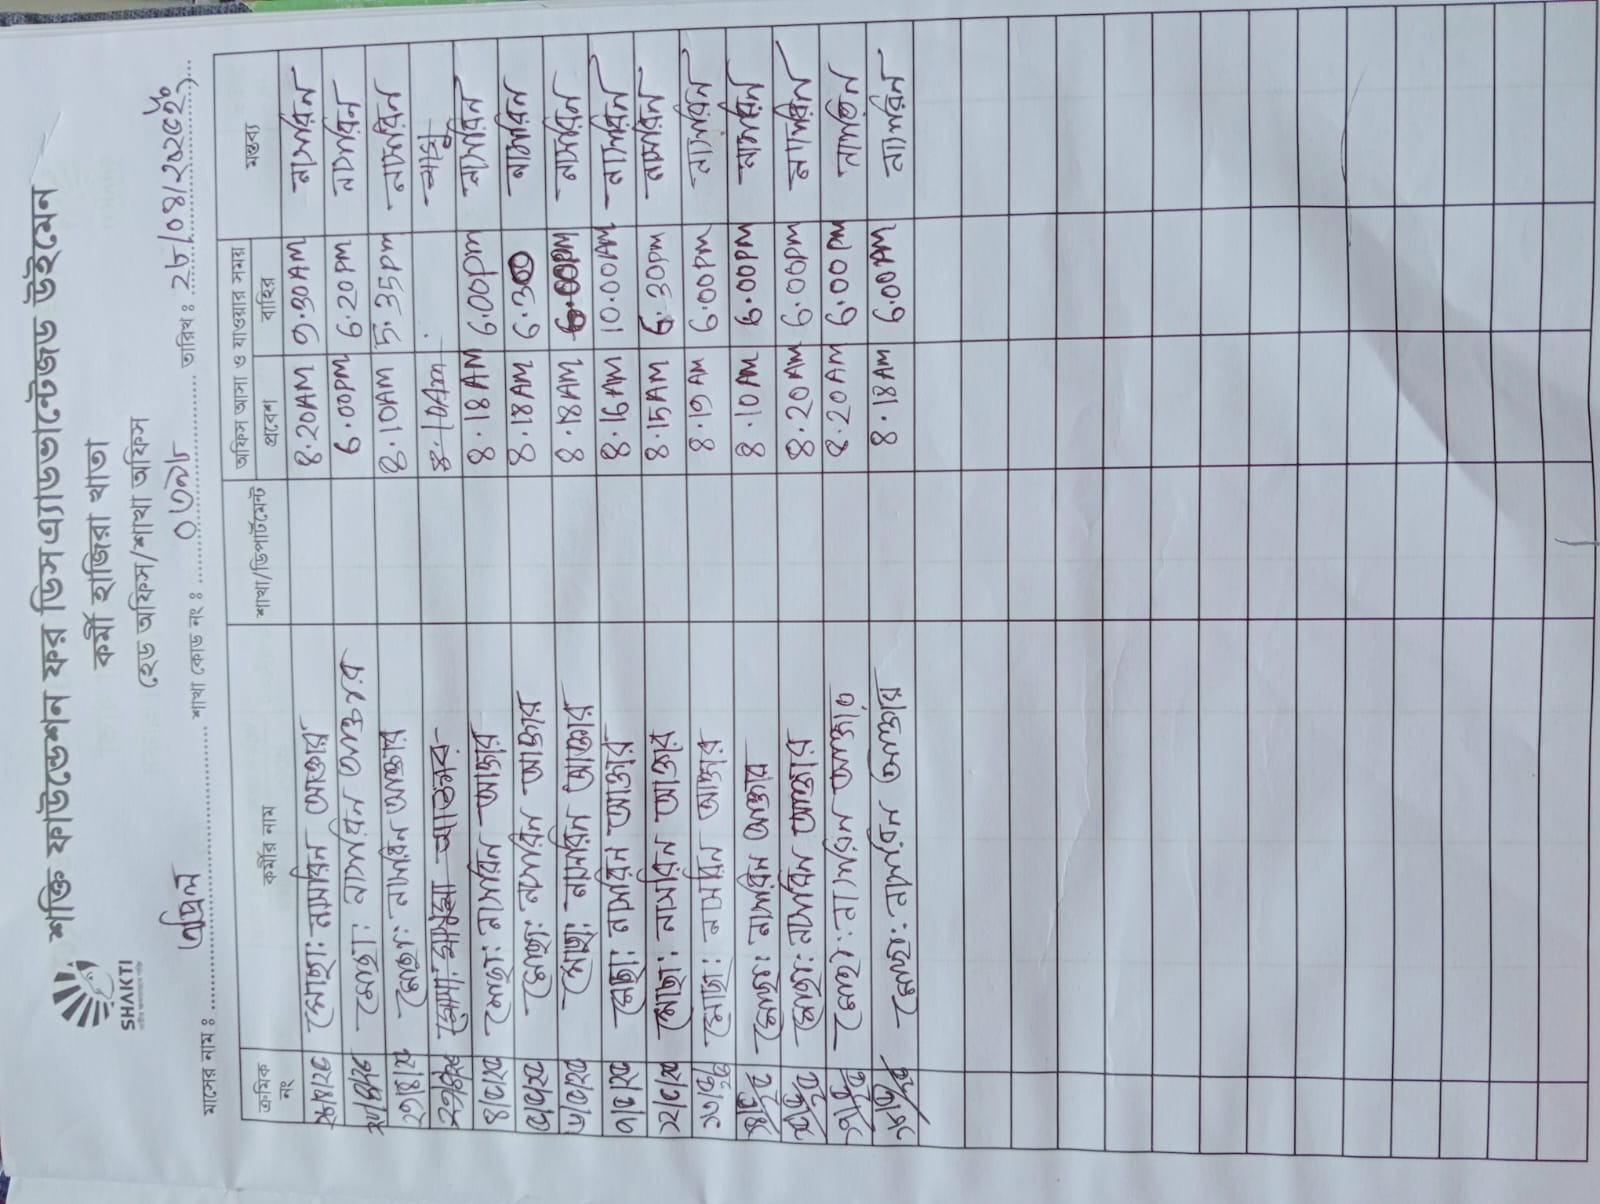 শক্তি ফাউন্ডেশন ফর ডিসএ্যাডভান্টেজড উইমেন
কর্মী হাজিরা খাতা
হেড অফিস/শাখা অফিস
SHAKTI
মাসের নাম ঃ এপ্রিল শাখা কোড নং ঃ ০৩৯৮ তারিখ ঃ ২৮/০৪/২০২৫ইং
ক্রমিক নং কর্মীর নাম শাখা/ডিপার্টমেন্ট অফিস আসা ও যাওয়ার সময় মন্তব্য
প্রবেশ বাহির
মোছা: নাসরিন আক্তার 8.20AM 9.30AM নাসরিন
মোছা: নাসরিন আক্তার 6.00PM 6.20pm নাসরিন
২৭/৪/২৫ মোছা: নাসরিন আক্তার 8.10AM 5.35pm নাসরিন
8.10Am
৪/৫/২৫ মোছা: নাসরিন আক্তার 8.18AM 6.00pm নাসরিন
৫/৫/২৫ মোছা: নাসরিন আক্তার 8.18AM 6.300 নাসরিন
৬/৫/২৫ মোছা: নাসরিন আক্তার 8.18AM 6.00PM নাসরিন
৭/৫/২৫ মোছা: নাসরিন আক্তার 8.16AM 10.00AM নাসরিন
১২/৫/২৫ মোছা: নাসরিন আক্তার 8.15AM 6.30pm নাসরিন
১৩/৫/২৫ মোছা: নাসরিন আক্তার 8.19AM 6.00PM নাসরিন
মোছা: নাসরিন আক্তার 8.10AM 6.00PM নাসরিন
মোছা: নাসরিন আক্তার 8.20AM 6.00PM নাসরিন
মোছা: নাসরিন আক্তার 8.20AM 6.00PM নাসরিন
মোছা: নাসরিন আক্তার 8.18AM 6.00AM নাসরিন